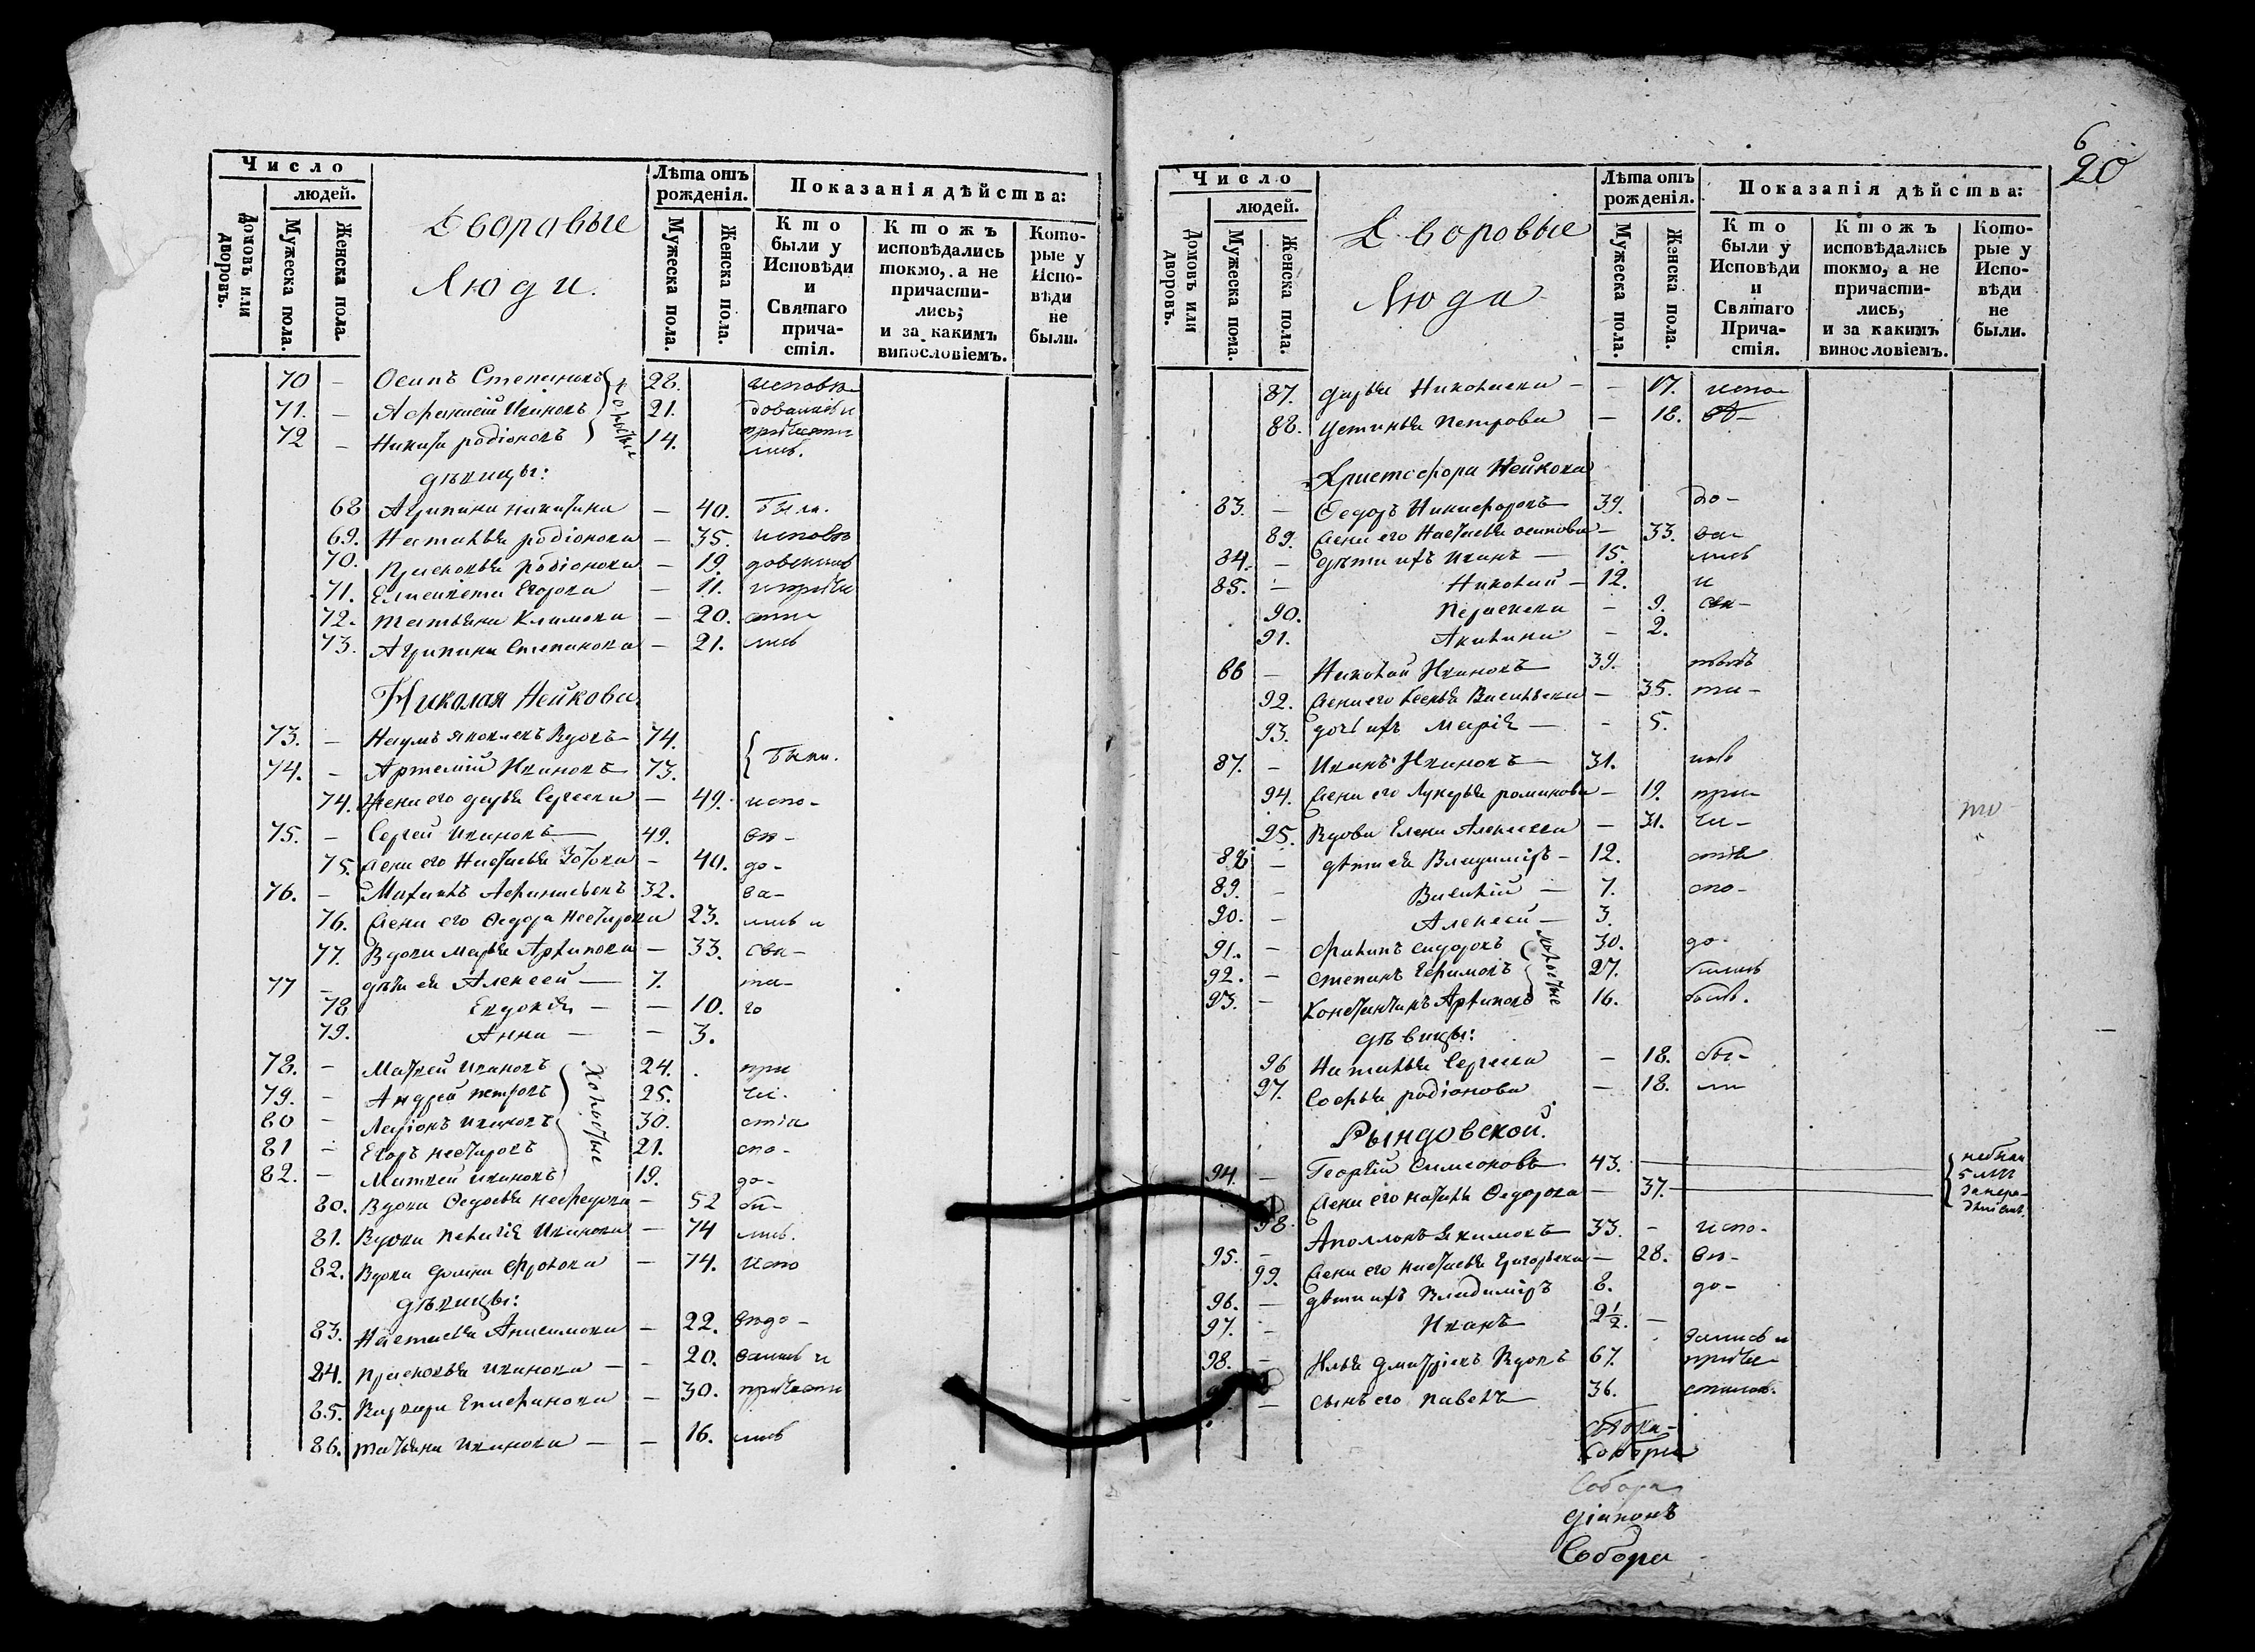 Число
людей.
Домовъ или дворовъ.
Мужеска пола.
Женска пола.
Дворовые
Люди.
Лѣта отъ рожденія.
Мужеска пола.
Женска пола.
Показанія дѣйства:
Кто были у Исповѣди и Святаго причастія.
Ктожъ исповѣдались токмо, а не причастились; и за какимъ винословіемъ.
Которые у Исповѣди не были.
70 – Осипъ Степановъ 28. исповѣ-
71. – Афанасій Ивановъ 21. довались и
72 – Никита родіоновъ 14. причасти
холостые
лись.
дѣвицы:
68 Агрипина никитина – 40. были.
69. Наталья родіонова – 35. исповѣ
70. Прасковья родіонова – 19. довались
71. Елисавета Егорова – 11. и прича
72. татьяна Климова – 20. сти
73. Агрипина Степанова – 21. лись
Николая Нейкова
73. – Наумъ яковлевъ Вдовъ 74.
74. – Артемій Ивановъ 73. были.
74. Жена его дарья Сергеева – 49. испо-
75. – Сергей Ивановъ 49. вѣ-
75. Жена его Настасья Зотова – 40. до-
76. – Михаилъ Афанасьевъ 32. ва-
76. Жена его Федора Нестерова 23. лись и
77. Вдова Марья Архипова – 33. свя-
77 – дѣти ея Алексей 7. та-
78 Евдокія – 10. го
79. Анна – 3.
78. – Матвей Ивановъ 24. при
79. – Андрей петровъ 25. ча.
80 – Ларіонъ Ивановъ 30. стія
81 – Егоръ нестеровъ 21. спо-
82. – Матвей ивановъ 19. до-
Холостые
80. Вдова Федосья нефедова – 52 би-
81. Вдова пелагія Иванова – 74 лись.
82. Вдова домна фролова – 74. испо
дѣвицы:
83. Настасья Анисимова – 22. вѣдо-
84. прасковья иванова – 20. вались и
85. Варвара Епифанова – 30. причасти
86. татьяна иванова – 16. лись
6
20
Число
людей.
Домовъ или дворовъ.
Мужеска пола.
Женска пола.
Дворовые
Люди
Лѣта отъ рожденія.
Мужеска пола.
Женска пола.
Показанія дѣйства:
Кто были у Исповѣди и Святаго Причастія.
Ктожъ исповѣдались токмо, а не причастились, и за какимъ винословіемъ.
Которые у Исповѣди не были.
87. дарья Николаева – 17. испо-
88. Устинья Петрова – 18. вѣ-
Христофора Нейкова
83. – Федоръ Никифоровъ 39. до-
89. Жена его Настасья осипова – 33. ва-
84. – дѣти ихъ Иванъ 15. лись
85. – Николай 12. и
90. Параскева – 9. свя-
91. Акилина – 2.
86 – Николай Ивановъ 39.
92. Жена его Ксенья Васильева – 35. та-
93. дочь ихъ Марія – 5.
87. – Иванъ Ивановъ 31.
94. Жена его Лукерья романова – 19. при-
95. Вдова Елена Алексеева – 31. ча-
88 – дѣти ея Владиміръ 12. стія
89. – Василій 7. спо-
90. – Алексей 3.
91. – Филипъ сидоровъ 30. до-
92. – степанъ Ефимовъ 27. бились
93. – Константинъ Архиповъ 16.
холостые
дѣвицы:
96 Наталья Сергеева – 18. бы-
97. Софья родіонова – 18. ли
Рындовской.
94. – Георгій Симеоновъ 43. небыли
98. Жена его наталья Федорова – 37.
95. – Аполлонъ Якимовъ 33. испо-
99. Жена его настасья григорьева – 28. вѣ-
96. – дѣти ихъ Владиміръ 8. до-
97. – Иванъ 2½. вались и
98. – Илья дмитріевъ Вдовъ 67. прича-
– сынъ его павелъ 36. стились.
Собора
Собора
діаконъ
Собора